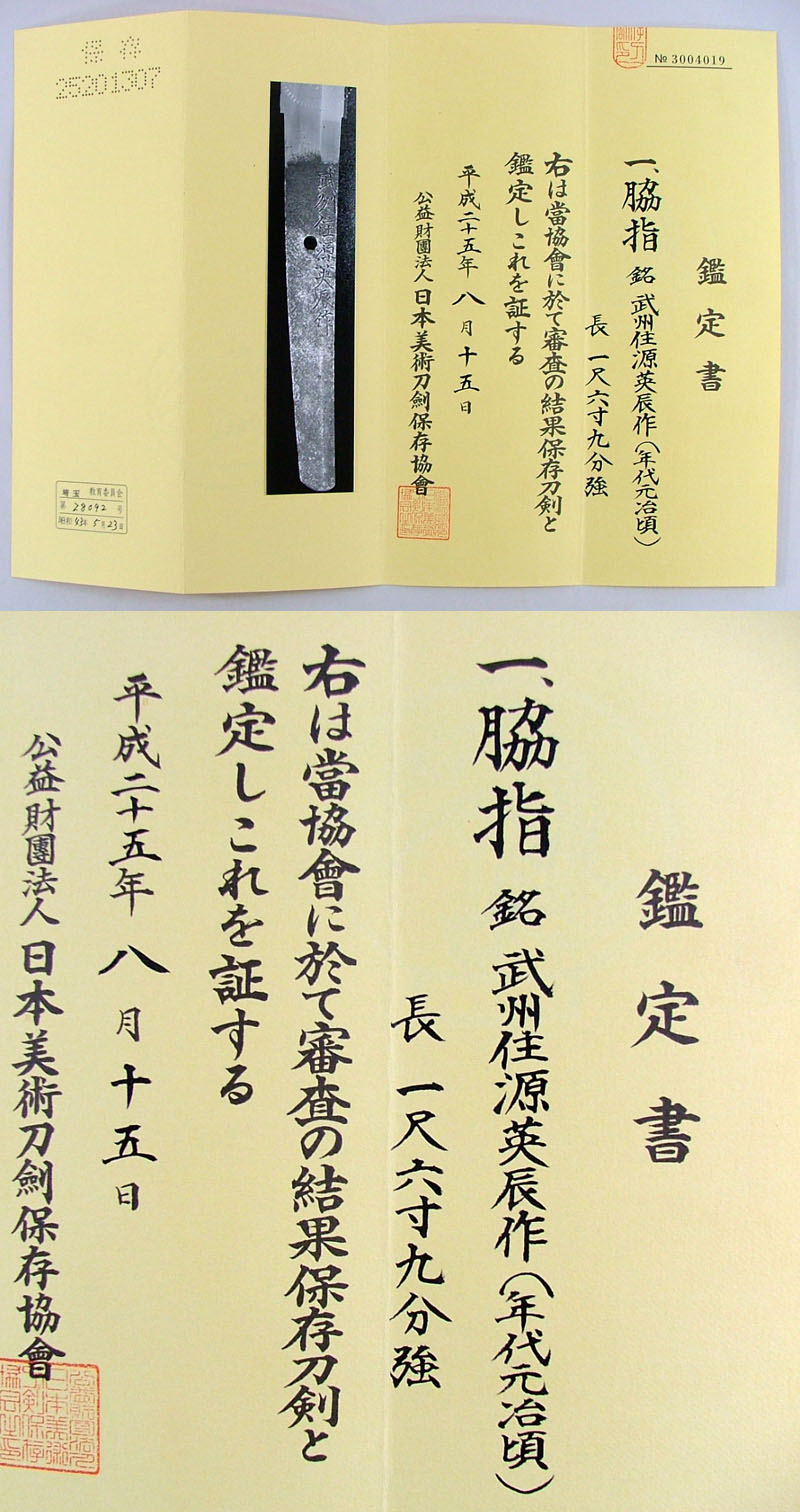 保存
25201307
№ 3004019
鑑定書
一、脇指 銘 武州住源英辰作(年代元治頃)
長 一尺六寸九分強
右は當協會に於て審査の結果保存刀剣と
鑑定しこれを証する
平成二十五年八月十五日
公益財團法人日本美術刀劍保存協會
武州住源英辰作
埼玉 教育委員会
第 28092 号
昭和 43年 5月23日
鑑定書
一、脇指 銘 武州住源英辰作(年代元治頃)
長 一尺六寸九分強
右は當協會に於て審査の結果保存刀剣と
鑑定しこれを証する
平成二十五年八月十五日
公益財團法人日本美術刀劍保存協會